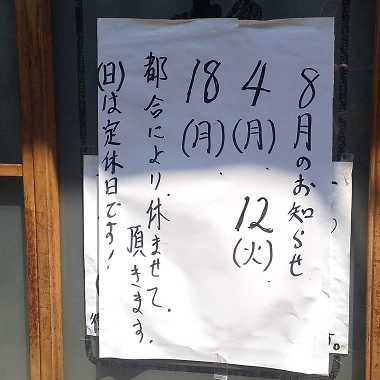 8月のお知らせ
4(月) 12(火)
18(月)
都合により休ませて
頂きます。
(日)は定休日です!